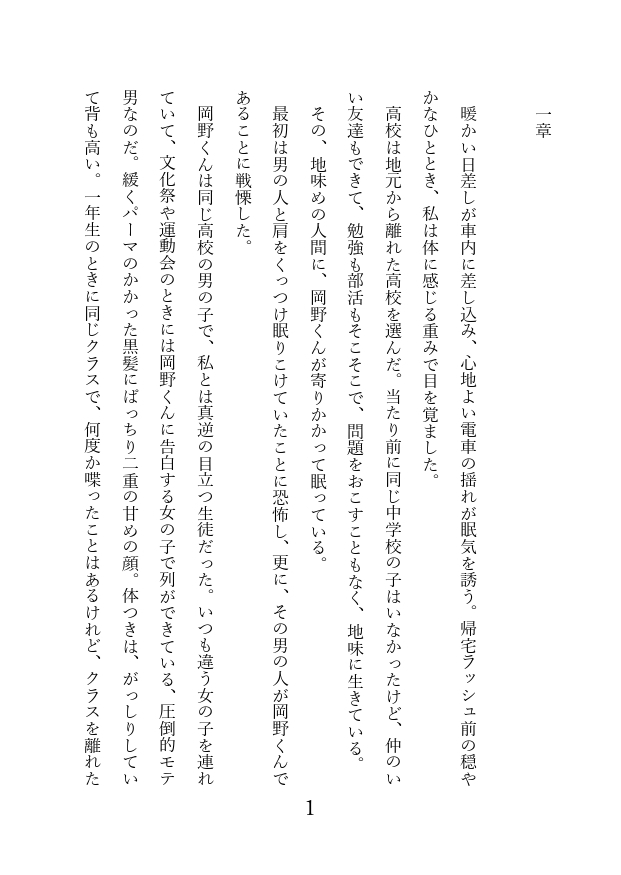 一章
　暖かい日差しが車内に差し込み、心地よい電車の揺れが眠気を誘う。帰宅ラッシュ前の穏や
かなひととき、私は体に感じる重みで目を覚ました。
　高校は地元から離れた高校を選んだ。当たり前に同じ中学校の子はいなかったけど、仲のい
い友達もできて、勉強も部活もそこそこで、問題をおこすこともなく、地味に生きている。
　その、地味めの人間に、岡野くんが寄りかかって眠っている。
　最初は男の人と肩をくっつけ眠りこけていたことに恐怖し、更に、その男の人が岡野くんで
あることに戦慄した。
　岡野くんは同じ高校の男の子で、私とは真逆の目立つ生徒だった。いつも違う女の子を連れ
ていて、文化祭や運動会のときには岡野くんに告白する女の子で列ができている、圧倒的モテ
男なのだ。緩くパーマのかかった黒髪にぱっちり二重の甘めの顔。体つきは、がっしりしてい
て背も高い。一年生のときに同じクラスで、何度か喋ったことはあるけれど、クラスを離れた
1